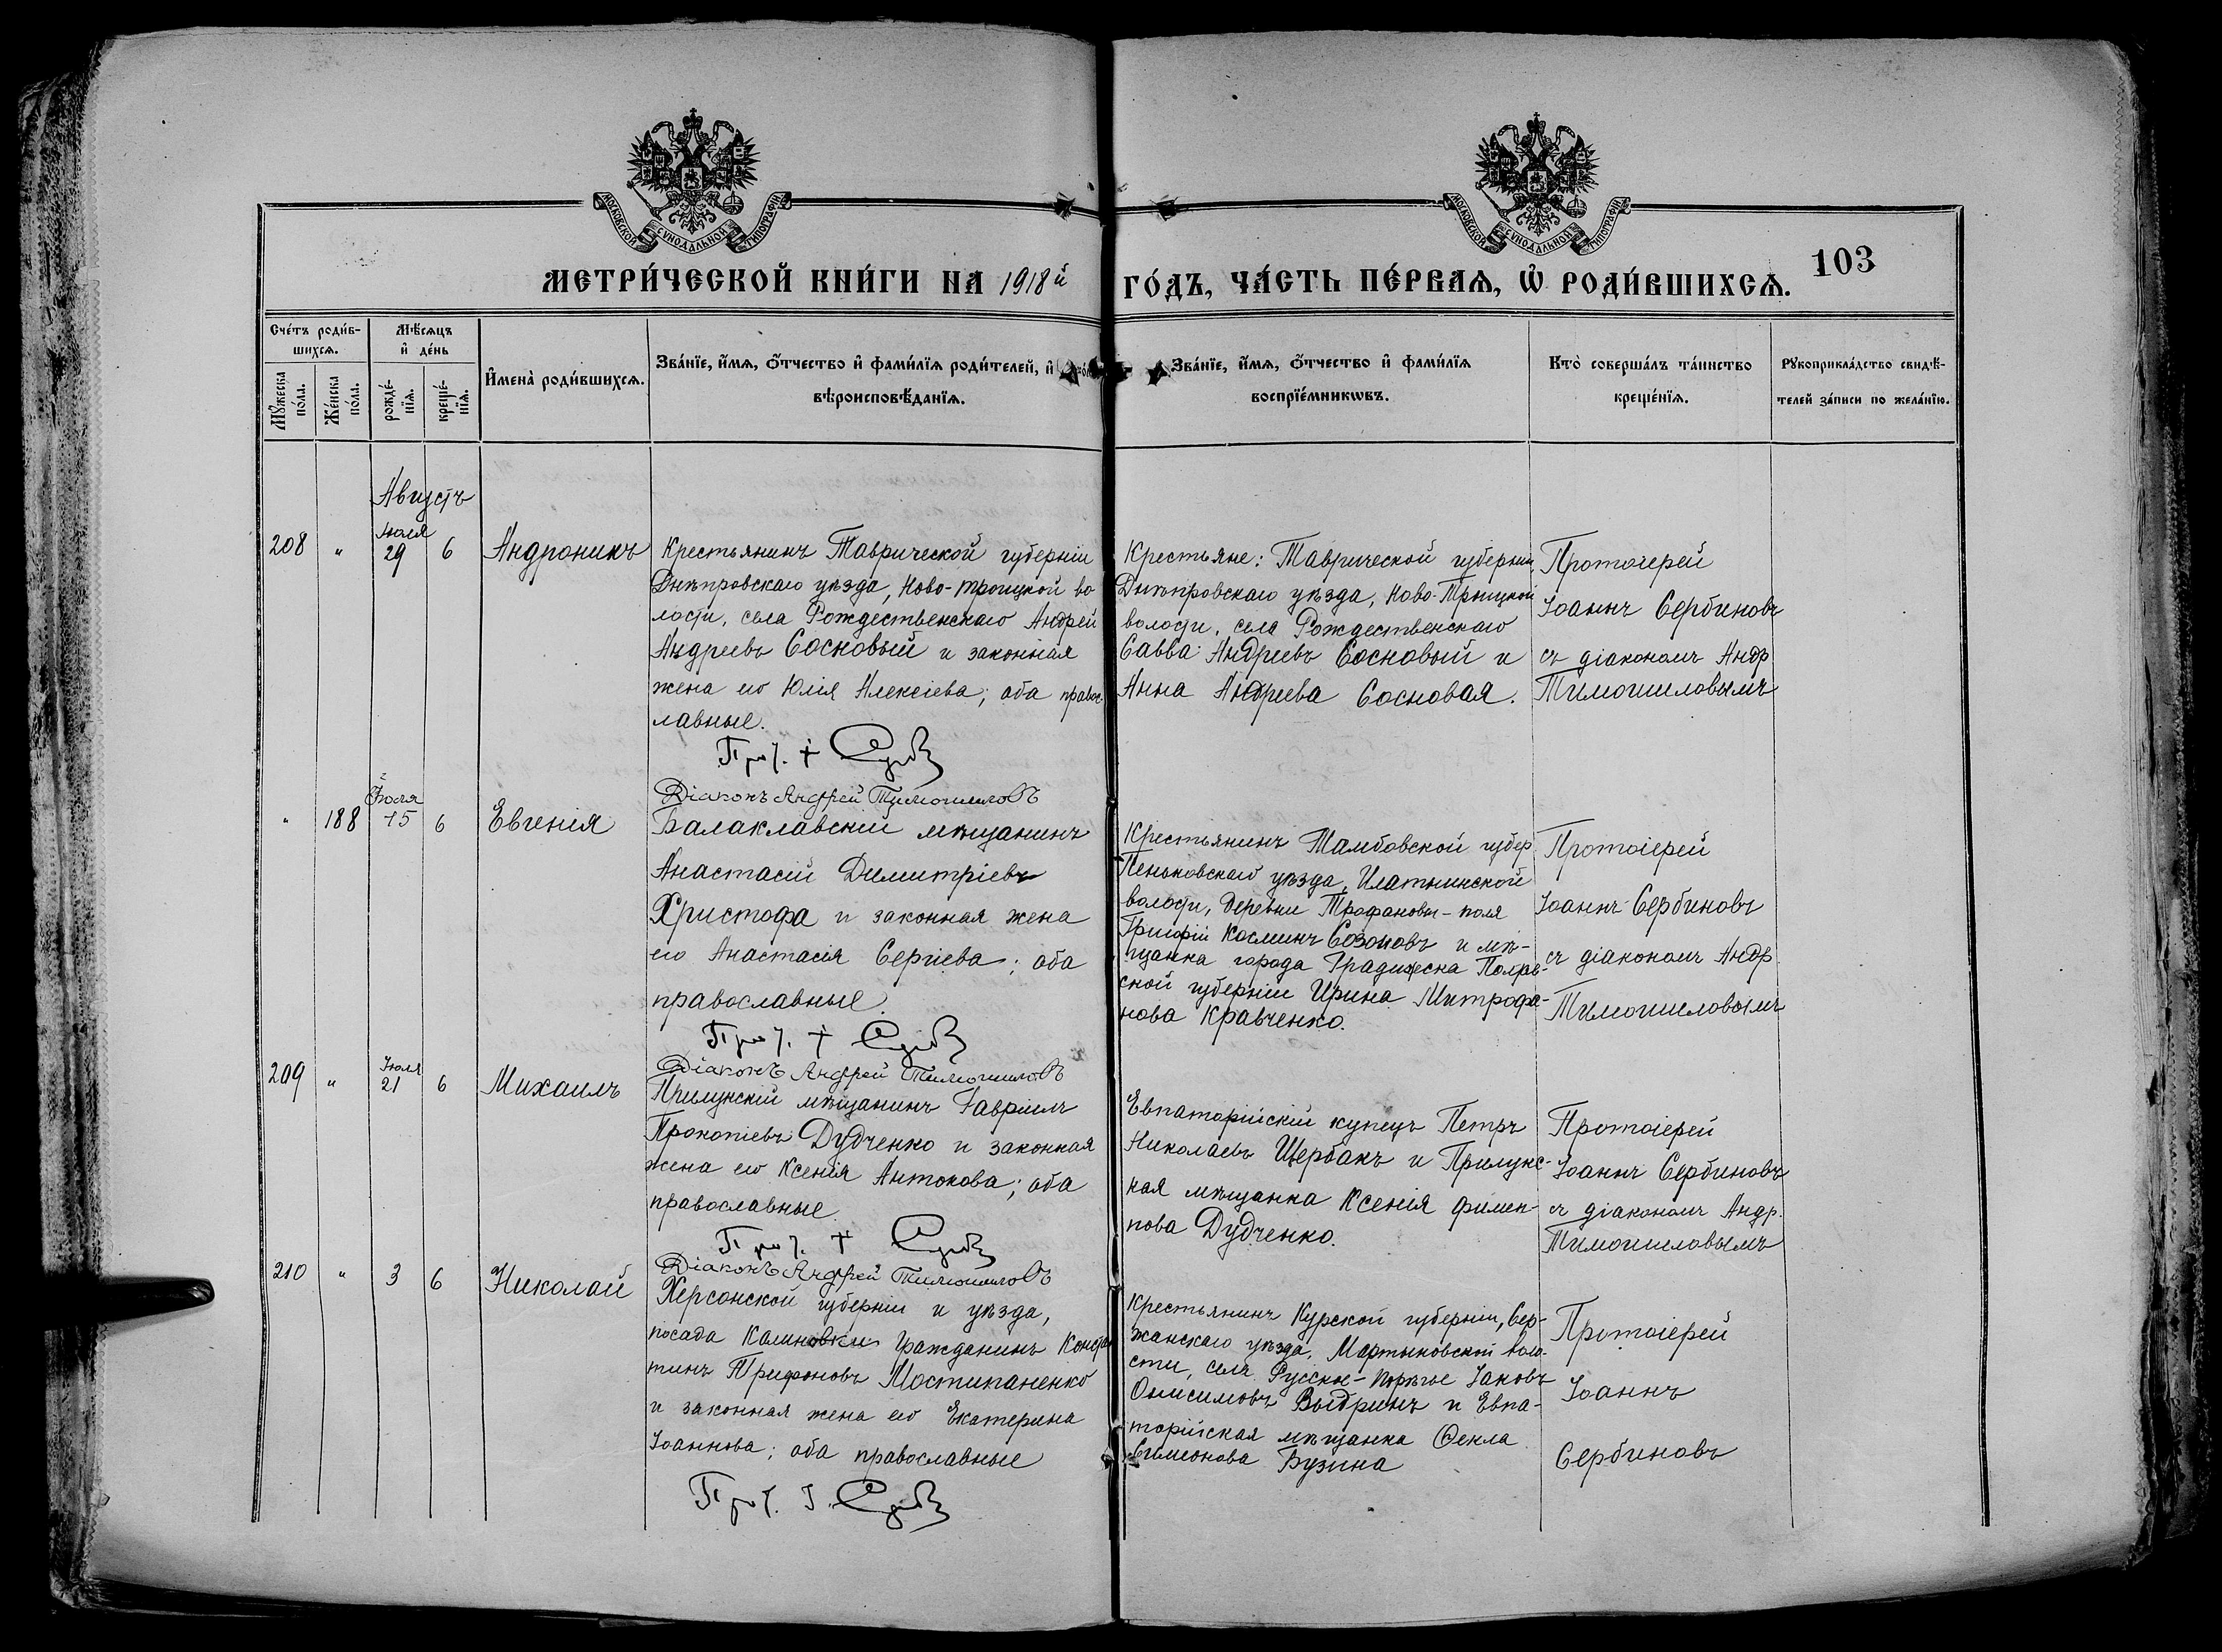 МОСКОВСКОЙ СУНОДАЛЬНОЙ ТИПОГРАФІИ
МОСКОВСКОЙ СУНОДАЛЬНОЙ ТИПОГРАФІИ
МЕТРИ́ЧЕСКОЙ КНИ́ГИ НА 1918й
ГО́ДЪ, ЧА́СТЬ ПЕ́РВАѦ, Ѡ҆ РОДИ́ВШИХСѦ.
103
Сче́тъ роди́в-
шихсѧ.
Мѣ́сѧцъ
и҆ де́нь
Мꙋ́жеска
по́ла.
Же́нска
по́ла.
рожде́-
нїѧ.
креще́-
нїѧ.
И҆мена̀ роди́вшихсѧ.
Зва́нїе, и҆́мѧ, ѻ҆́тчество и҆ фами́лїѧ роди́телей, и҆
вѣроисповѣ́данїѧ.
Зва́нїе, и҆́мѧ, ѻ҆́тчество и҆ фами́лїѧ
воспрїе́мникѡвъ.
Кто̀ соверша́лъ та́инство
креще́нїѧ.
Рꙋкоприкла́дство свидѣ́-
телей за́писи по жела́нїю.
Августъ
208 " Іюля 29 6 Андроникъ
Крестьянинъ Таврической губерніи
Днѣпровскаго уѣзда, Ново-Троицкой во
лости, села Рождественскаго Андрей
Андреевъ Сосновый и законная
жена его Юлія Алексіева; оба правос
лавные.
Прот. +
Діаконъ Андрей Тимошиловъ
Крестьяне: Таврической губерніи,
Днѣпровскаго уѣзда, Ново-Троицкой
волости, села Рождественскаго
Савва Андреевъ Сосновый и
Анна Андреева Сосновая.
Протоіерей
Іоаннъ Сербиновъ
съ діакономъ Андр
Тимошиловымъ
" 188 Іюля 15 6 Евгенія
Балаклавскій мѣщанинъ
Анастасій Димитріевъ
Христофа и законная жена
его Анастасія Сергіева; оба
православные.
Прот. +
Діаконъ Андрей Тимошиловъ
Крестьянинъ Тамбовской губер
уѣзда,
волости, деревни поля
Григорій Косминъ Созоновъ и мѣ-
щанка города Градижска Полтав-
ской губерніи Ирина Митрофа-
нова Кравченко.
Протоіерей
Іоаннъ Сербиновъ
съ діакономъ Андр.
Тимошиловымъ
209 " Іюля 21 6 Михаилъ
Прилукскій мѣщанинъ Гавріилъ
Прокопіевъ Дудченко и законная
жена его Ксенія Антонова; оба
православные.
Прот. +
Діаконъ Андрей Тимошиловъ
Евпаторійскій купецъ Петръ
Николаевъ Щербакъ и Прилукс-
кая мѣщанка Ксенія Филип-
пова Дудченко.
Протоіерей
Іоаннъ Сербиновъ
съ діакономъ Андр.
Тимошиловымъ
210 " 3 6 Николай
Херсонской губерніи и уѣзда,
посада Калиновки гражданинъ Констан
тинъ Трифоновъ Мостипаненко
и законная жена его Екатерина
Іоаннова; оба православные
Прот. І.
Крестьянинъ Курской губерніи,
уѣзда, Мартыновской воло-
сти, села Русское-Порѣчье Іаковъ
Онисимовъ Выдринъ и Евпа-
торійская мѣщанка Ѳекла
Симеонова Бузина
Протоіерей
Іоаннъ
Сербиновъ